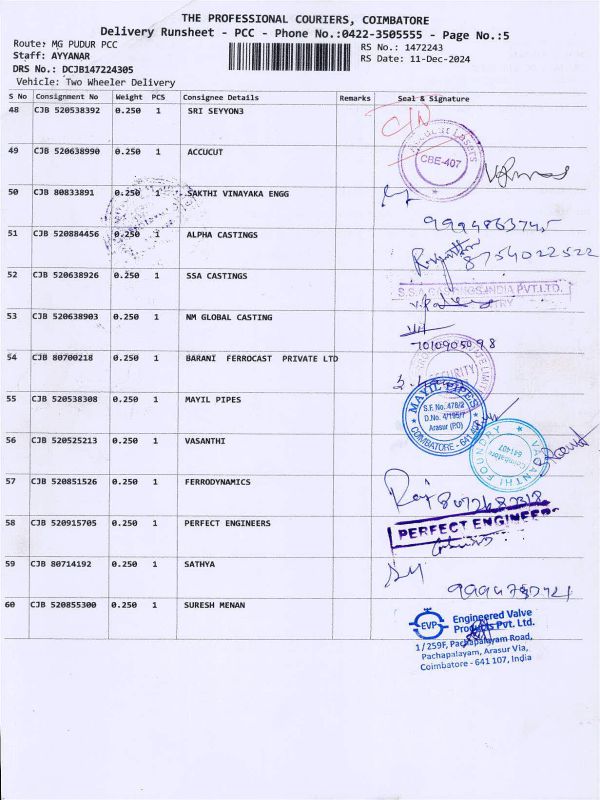 THE PROFESSIONAL COURIERS, COIMBATORE
Delivery Runsheet - PCC - Phone No.:0422-3505555 - Page No.:5
Route: MG PUDUR PCC
RS No.: 1472243
Staff: AYYANAR
RS Date: 11-Dec-2024
DRS No.: DCJB147224305
Vehicle: Two Wheeler Delivery
S No Consignment No Weight PCS Consignee Details Remarks Seal & Signature
48 CJB 520538392 0.250 1 SRI SEYYON3
49 CJB 520638990 0.250 1 ACCUCUT
Accucut Lasers
CBE-407
50 CJB 80833891 0.250 1 SAKTHI VINAYAKA ENGG
51 CJB 520884456 0.250 1 ALPHA CASTINGS
8754022522
52 CJB 520638926 0.250 1 SSA CASTINGS
S.S.A CASTINGS INDIA PVT.LTD.
53 CJB 520638903 0.250 1 NM GLOBAL CASTING
7010905098
54 CJB 80700218 0.250 1 BARANI FERROCAST PRIVATE LTD
SECURITY
55 CJB 520538308 0.250 1 MAYIL PIPES
MAYIL PIPES
S.F. No. 478/2
D.No. 4/195/7
Arasur (PO)
COIMBATORE - 641 407
56 CJB 520525213 0.250 1 VASANTHI
VASANTHI FOUNDRY
Coimbatore
641407
57 CJB 520851526 0.250 1 FERRODYNAMICS
58 CJB 520915705 0.250 1 PERFECT ENGINEERS
PERFECT ENGINEERS
59 CJB 80714192 0.250 1 SATHYA
60 CJB 520855300 0.250 1 SURESH MENAN
EVP Engineered Valve
Products Pvt. Ltd.
1/259F, Pachapalayam Road,
Pachapalayam, Arasur Via,
Coimbatore - 641 107, India